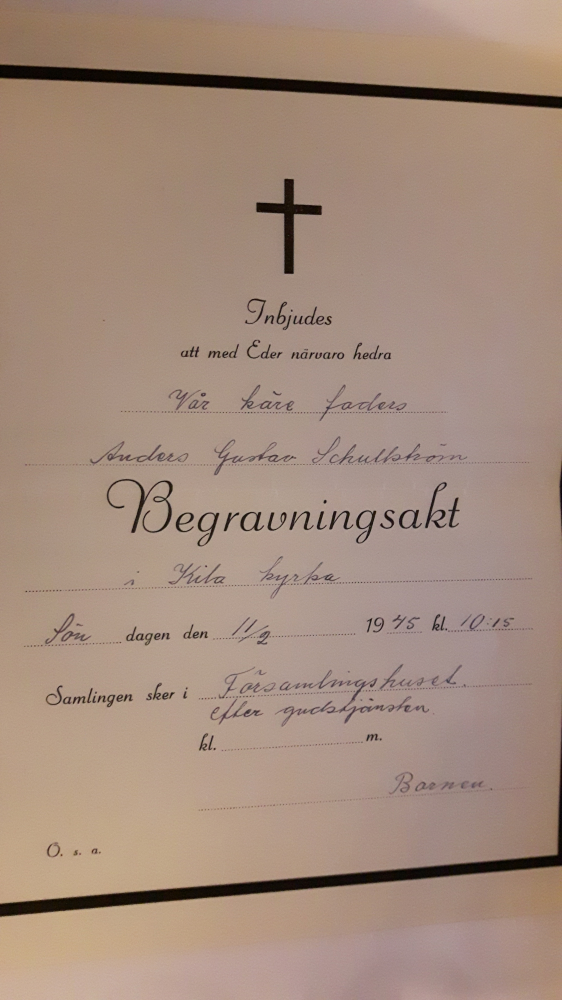 Inbjudes
att med Eder närvaro hedra
Vår käre faders
Anders Gustav Schullström
Begravningsakt
i Kila kyrka
Sön dagen den 11/2 1945 kl. 10:15
Samlingen sker i Församlingshuset.
efter gudstjänsten.
kl. m.
Barnen.
O. s. a.